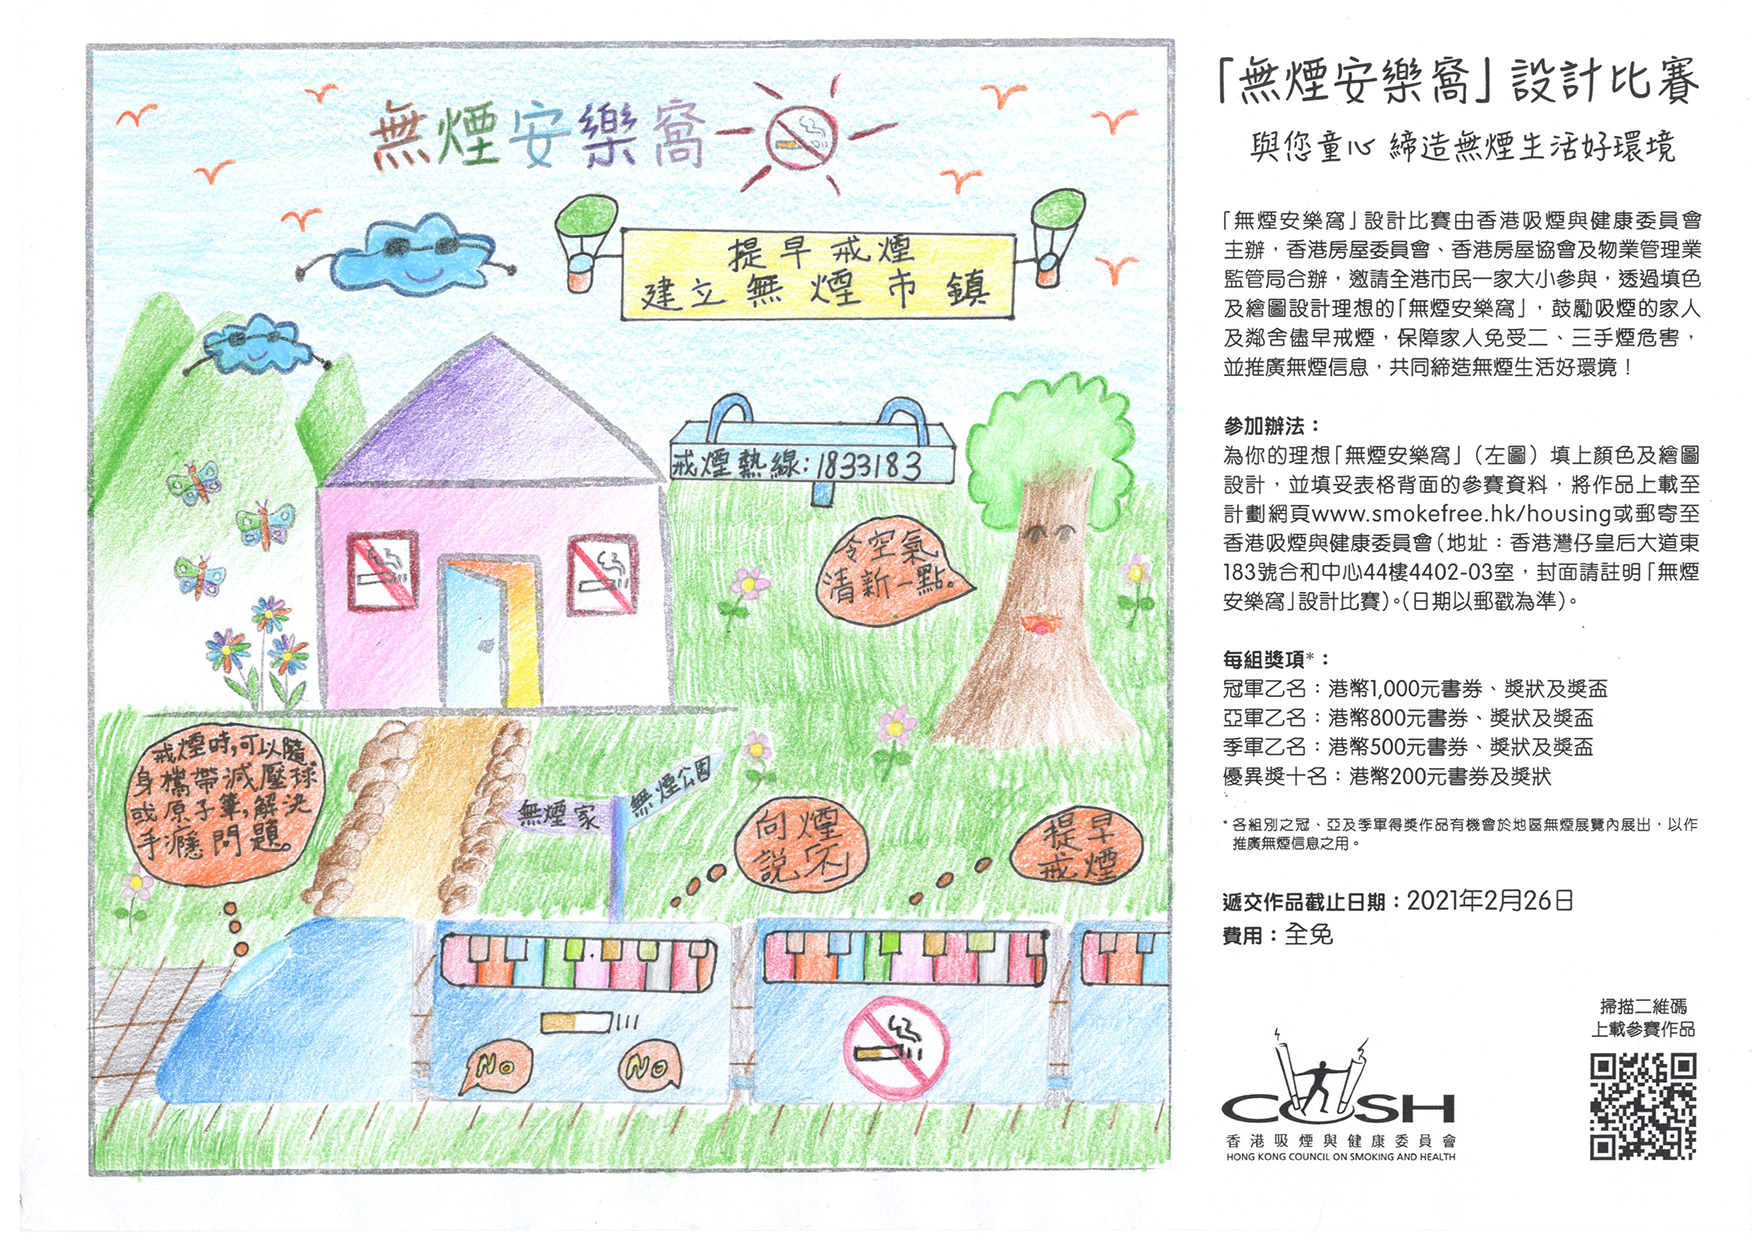 無煙安樂窩
提早戒煙
建立無煙市鎮
戒煙熱線:1833183
冷空氣
清新一點。
戒煙時,可以隨
身攜帶減壓球
或原子筆,解決
手癮問題。
無煙家
無煙公園
向煙
說不
提早
戒煙
No
No
「無煙安樂窩」設計比賽
與您童心 締造無煙生活好環境
「無煙安樂窩」設計比賽由香港吸煙與健康委員會
主辦，香港房屋委員會、香港房屋協會及物業管理業
監管局合辦，邀請全港市民一家大小參與，透過填色
及繪圖設計理想的「無煙安樂窩」，鼓勵吸煙的家人
及鄰舍儘早戒煙，保障家人免受二、三手煙危害，
並推廣無煙信息，共同締造無煙生活好環境！
參加辦法：
為你的理想「無煙安樂窩」（左圖）填上顏色及繪圖
設計，並填妥表格背面的參賽資料，將作品上載至
計劃網頁www.smokefree.hk/housing或郵寄至
香港吸煙與健康委員會（地址：香港灣仔皇后大道東
183號合和中心44樓4402-03室，封面請註明「無煙
安樂窩」設計比賽）。（日期以郵戳為準）。
每組獎項*：
冠軍乙名：港幣1,000元書券、獎狀及獎盃
亞軍乙名：港幣800元書券、獎狀及獎盃
季軍乙名：港幣500元書券、獎狀及獎盃
優異獎十名：港幣200元書券及獎狀
* 各組別之冠、亞及季軍得獎作品有機會於地區無煙展覽內展出，以作
推廣無煙信息之用。
遞交作品截止日期：2021年2月26日
費用：全免
掃描二維碼
上載參賽作品
COSH
香港吸煙與健康委員會
HONG KONG COUNCIL ON SMOKING AND HEALTH